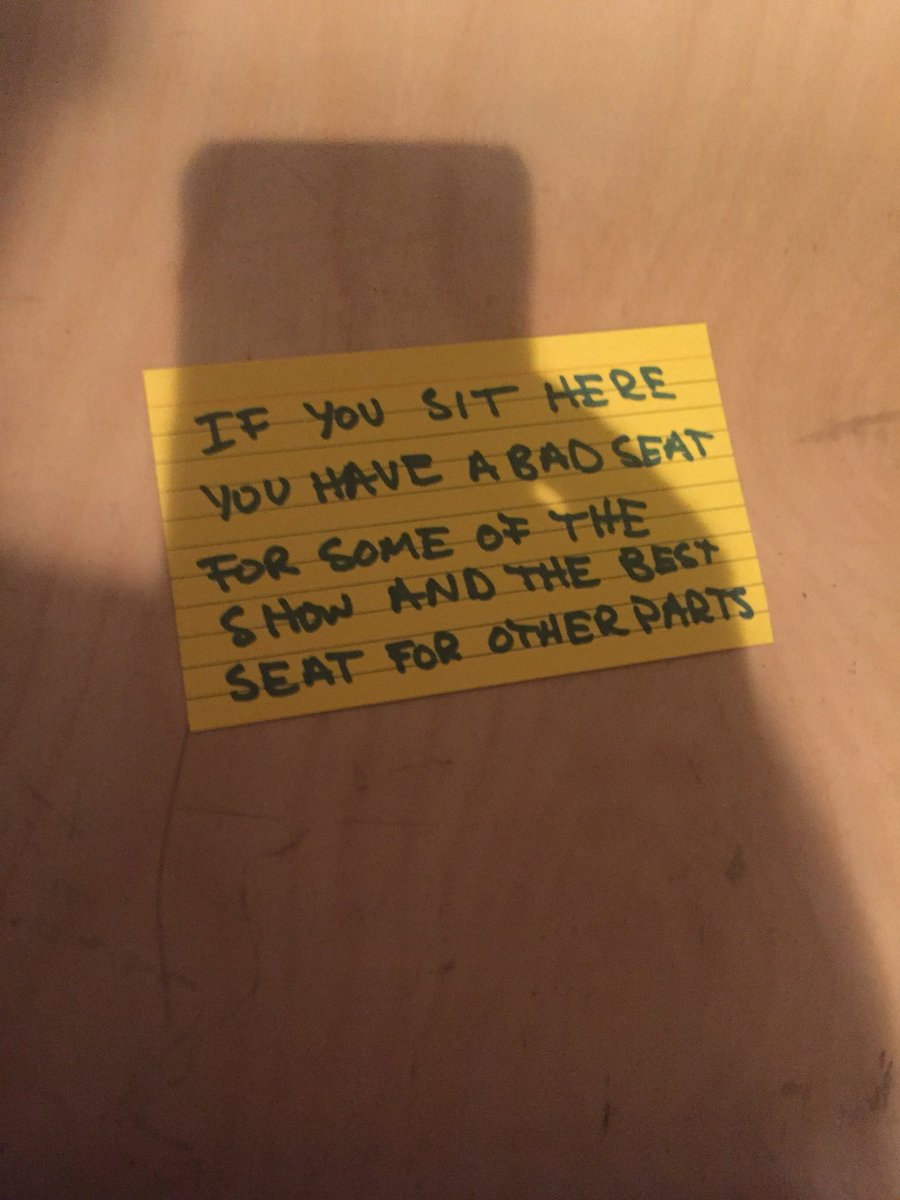 IF YOU SIT HERE
YOU HAVE A BAD SEAT
FOR SOME OF THE
SHOW AND THE BEST
SEAT FOR OTHER PARTS